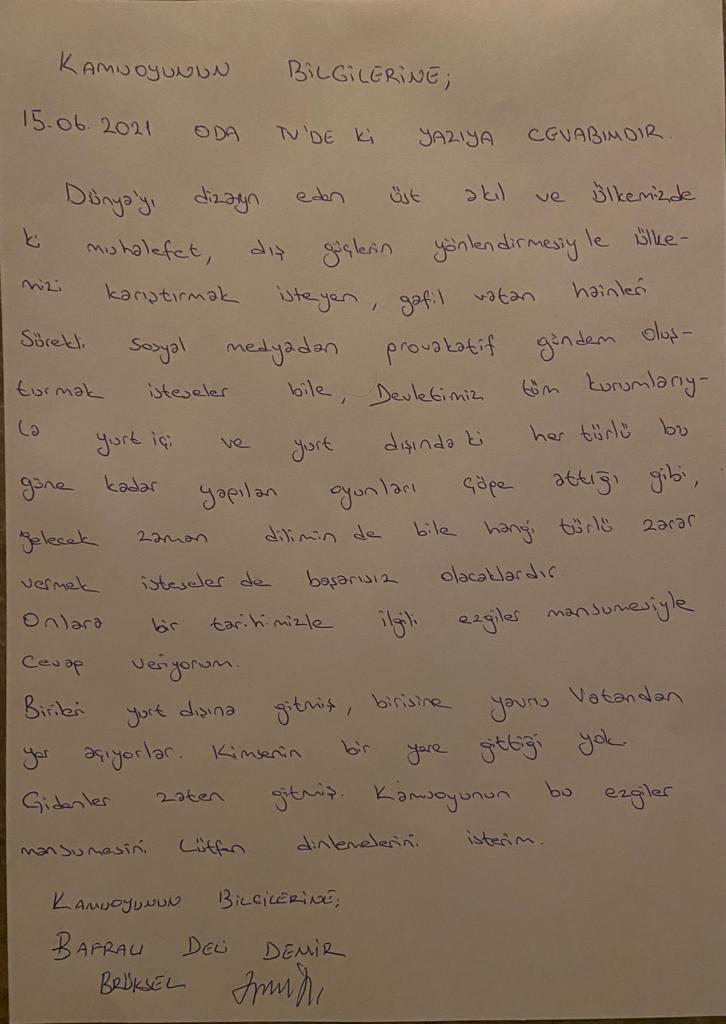 KAMUOYUNUN BİLGİLERİNE;
15.06.2021 ODA TV'DE Ki YAZIYA CEVABIMDIR.
Dünya'yı dizayn eden üst akıl ve ülkemizde
ki muhalefet, dış güçlerin yönlendirmesiyle ülke-
mizi karıştırmak isteyen, gafil vatan hainleri
Sürekli sosyal medyadan provakatif gündem oluş-
turmak isteseler bile, Devletimiz tüm kurumlarıy-
la yurt içi ve yurt dışında ki her türlü bu
güne kadar yapılan oyunları çöpe attığı gibi,
gelecek zaman dilimin de bile hangi türlü zarar
vermek isteseler de başarısız olacaklardır.
Onlara bir tarihimizle ilgili ezgiler mansumesiyle
Cevap veriyorum.
Birileri yurt dışına gitmiş, birisine yavru Vatandan
yer açıyorlar. Kimsenin bir yere gittiği yok.
Gidenler zaten gitmiş. Kamuoyunun bu ezgiler
mansumesini Lütfen dinlemelerini isterim.
KAMUOYUNUN BİLGİLERİNE;
BAFRALI DELİ DEMİR
BRÜKSEL